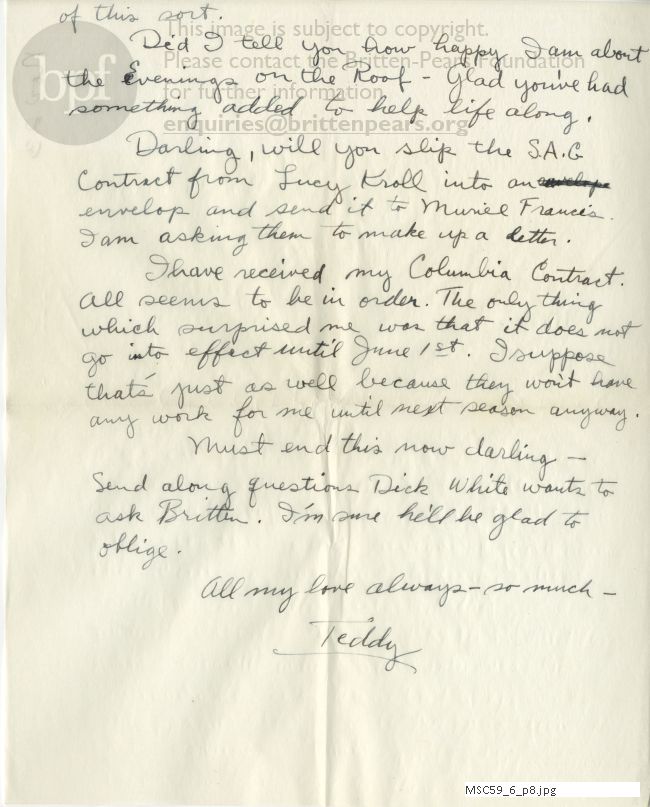 of this sort.
This image is subject to copyright.
Did I tell you how happy I am about
Please contact the Britten-Pears Foundation
the Evenings on the Roof - Glad you've had
for further information
something added to help life along.
enquiries@brittenpears.org
bpf
Darling, will you slip the S.A.G
Contract from Lucy Kroll into an envelope
envelop and send it to Muriel Francis.
I am asking them to make up a letter.
I have received my Columbia Contract.
All seems to be in order. The only thing
which surprised me was that it does not
go into effect until June 1st. I suppose
that's just as well because they won't have
any work for me until next season anyway.
Must end this now darling —
Send along questions Dick White wants to
ask Britten. I'm sure he'll be glad to
oblige.
All my love always - so much -
Teddy
MSC59_6_p8.jpg